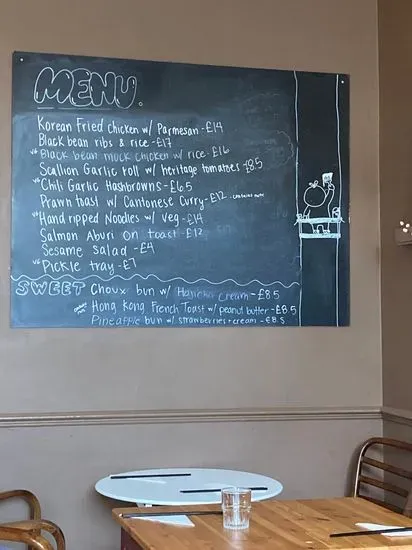 MENU.
Korean Fried chicken w/ Parmesan - £14
Black bean ribs & rice - £17
vg Black bean mock chicken w/ rice - £16
Scallion Garlic roll w/ heritage tomatoes £8.5
vg Chili Garlic Hashbrowns - £6.5
Prawn toast w/ Cantonese Curry - £12 - contains nuts
vg Hand ripped Noodles w/ veg - £14
Salmon Aburi on toast - £12
Sesame salad - £4
vg Pickle tray - £7
SWEET Choux bun w/ cream - £8.5
Hong Kong French Toast w/ peanut butter - £8.5
Pineapple bun w/ strawberries + cream - £8.5